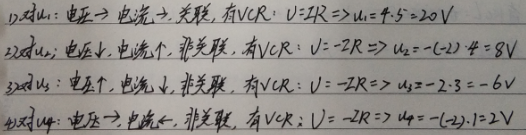 1)对u₁: 电压→ 电流→, 关联, 有VCR: U=IR => u₁=4·5=20V
2)对u₂: 电压↓, 电流↑, 非关联, 有VCR: U=-IR => u₂=-(-2)·4=8V
3)对u₃: 电压↑, 电流↓, 非关联, 有VCR: U=-IR => u₃=-2·3=-6V
4)对u₄: 电压→, 电流←, 非关联, 有VCR: U=-IR => u₄=-(-2)·1=2V